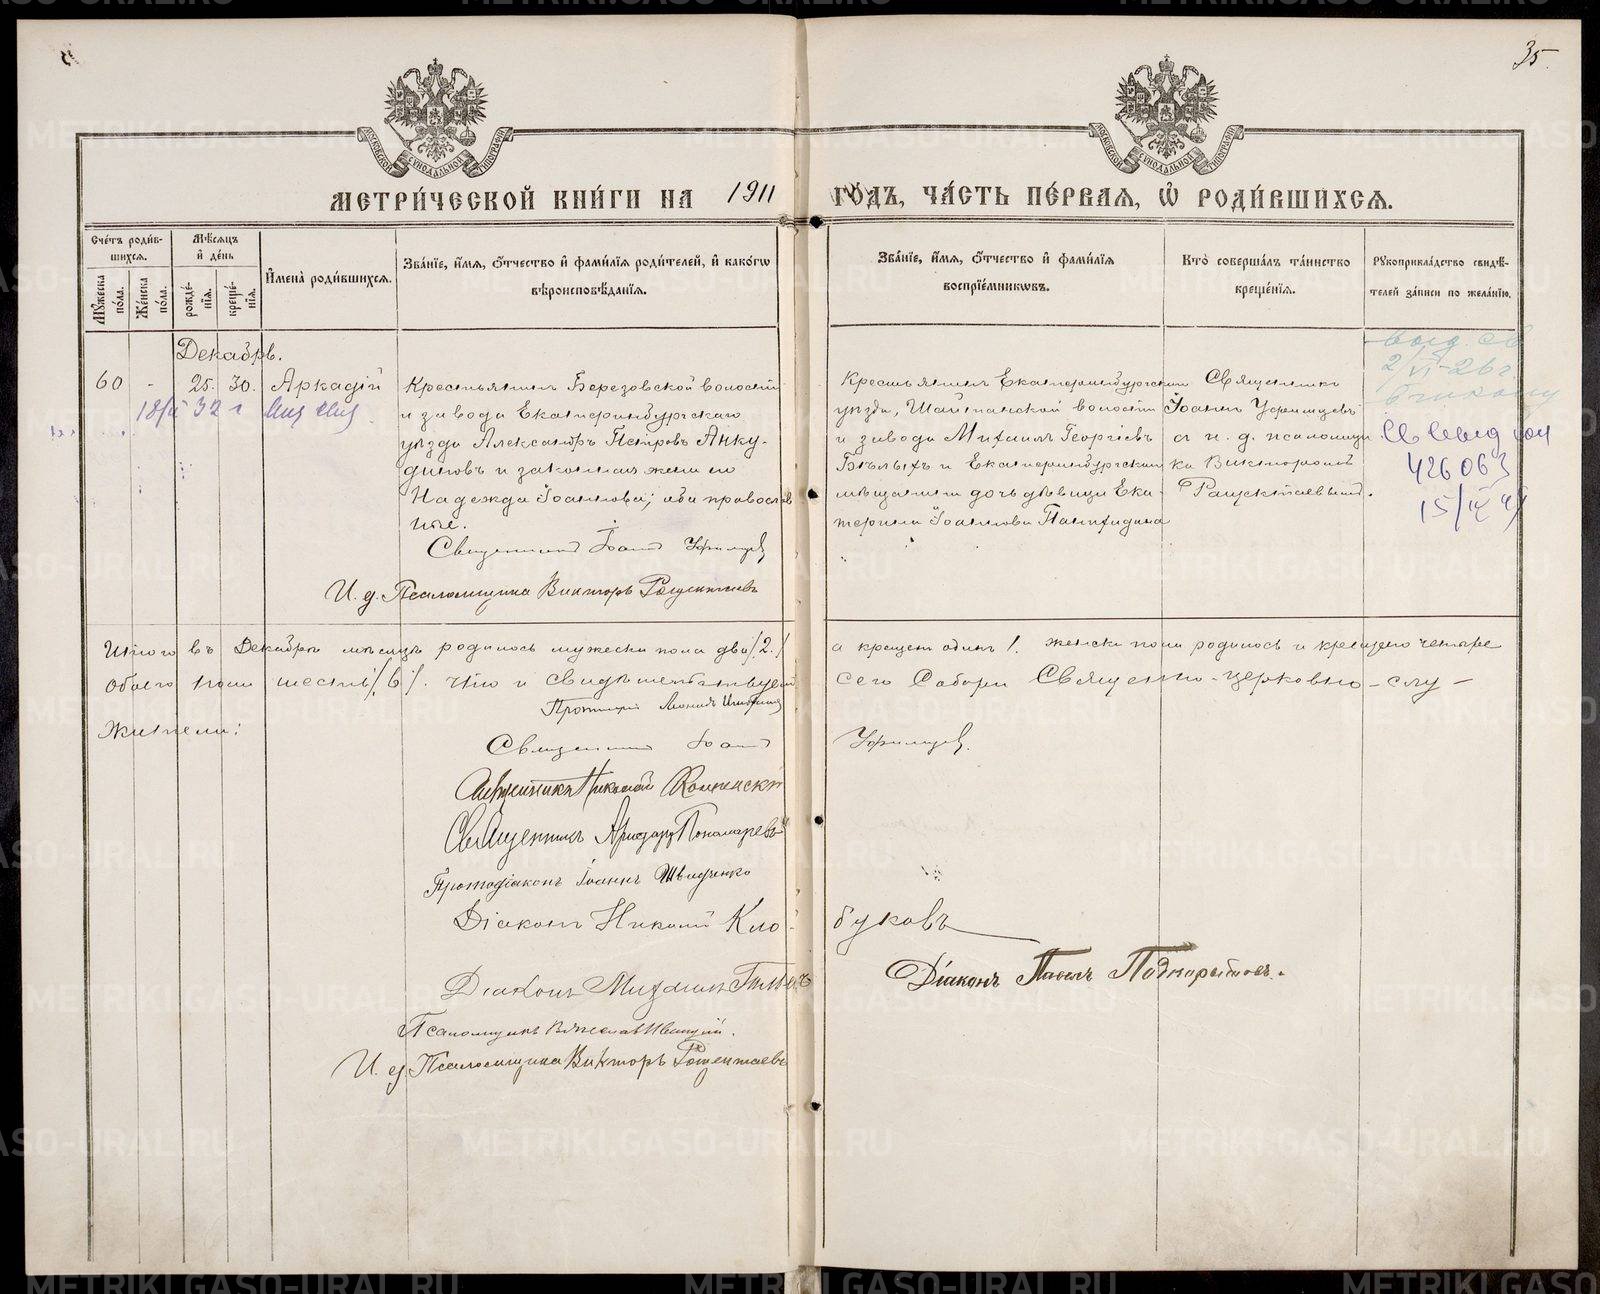 35.
МОСКОВСКОЙ СѴНОДАЛЬНОЙ ТИПОГРАФІИ
МОСКОВСКОЙ СѴНОДАЛЬНОЙ ТИПОГРАФІИ
МЕТРИ́ЧЕСКОЙ КНИ́ГИ НА 1911 ГОДЪ, ЧА́СТЬ ПЕ́РВАЯ, Ѡ РОДИ́ВШИХСЯ.
Сче́тъ роди́в-
шихся.
Мꙋжеска по́ла.
Же́нска по́ла.
Мѣ́сяцъ
и де́нь
рожде́-
нія.
креще́-
нія.
Имена̀ роди́вшихся.
Зва́ніе, и́мя, о́тчество и фами́лія роди́телей, и како́гѡ
вѣроисповѣ́данія.
Зва́ніе, и́мя, о́тчество и фами́лія
воспріе́мникѡвъ.
Кто̀ соверша́лъ та́инство
креще́нія.
Рꙋкоприкла́дство свидѣ́-
телей за́писи по жела́нію.
Декабрь.
60 - 25. 30. Аркадій
Крестьянинъ Березовской волости
и завода Екатеринбургскаго
уѣзда Александръ Петровъ Анку-
диновъ и законная жена его
Надежда Іоаннова; оба православ
ные.
Священникъ Іоаннъ Уфимцев
И. д. Псаломщика Викторъ Рощектаевъ
Крестьянинъ Екатеринбургскаго
уѣзда, Шайтанской волости
и завода Михаилъ Георгіевъ
Бѣлыхъ и Екатеринбургская
мѣщанская дочь дѣвица Ека-
терина Іоаннова Панфидина
Священникъ
Іоаннъ Уфимцевъ
и и. д. псаломщи
ка Викторомъ
Рощектаевымъ.
18/ 32 г
2/VI-26 г
426063
15/IX 41
Итого въ Декабрѣ мѣсяцѣ родилось мужеска пола два /2./ а крещенъ одинъ 1. женска пола родилось и крещено четыре
обоего пола шесть /6/. Что и свидѣтельствуемъ сего Собора Священно-церковно-слу-
жители:
Протоіерей Леонидъ Игноратовъ
Священникъ Іоаннъ Уфимцев.
Священникъ Николай Коменскій
Священникъ Пономаревъ
Протодіаконъ Іоаннъ Швидченко
Діаконъ Николай Кло- буковъ
Діаконъ Михаилъ
Діаконъ Павелъ Поднорытовъ.
Псаломщикъ Вячеславъ Ивановъ.
И. д. Псаломщика Викторъ Рощектаевъ
METRIKI.GASO-URAL.RU